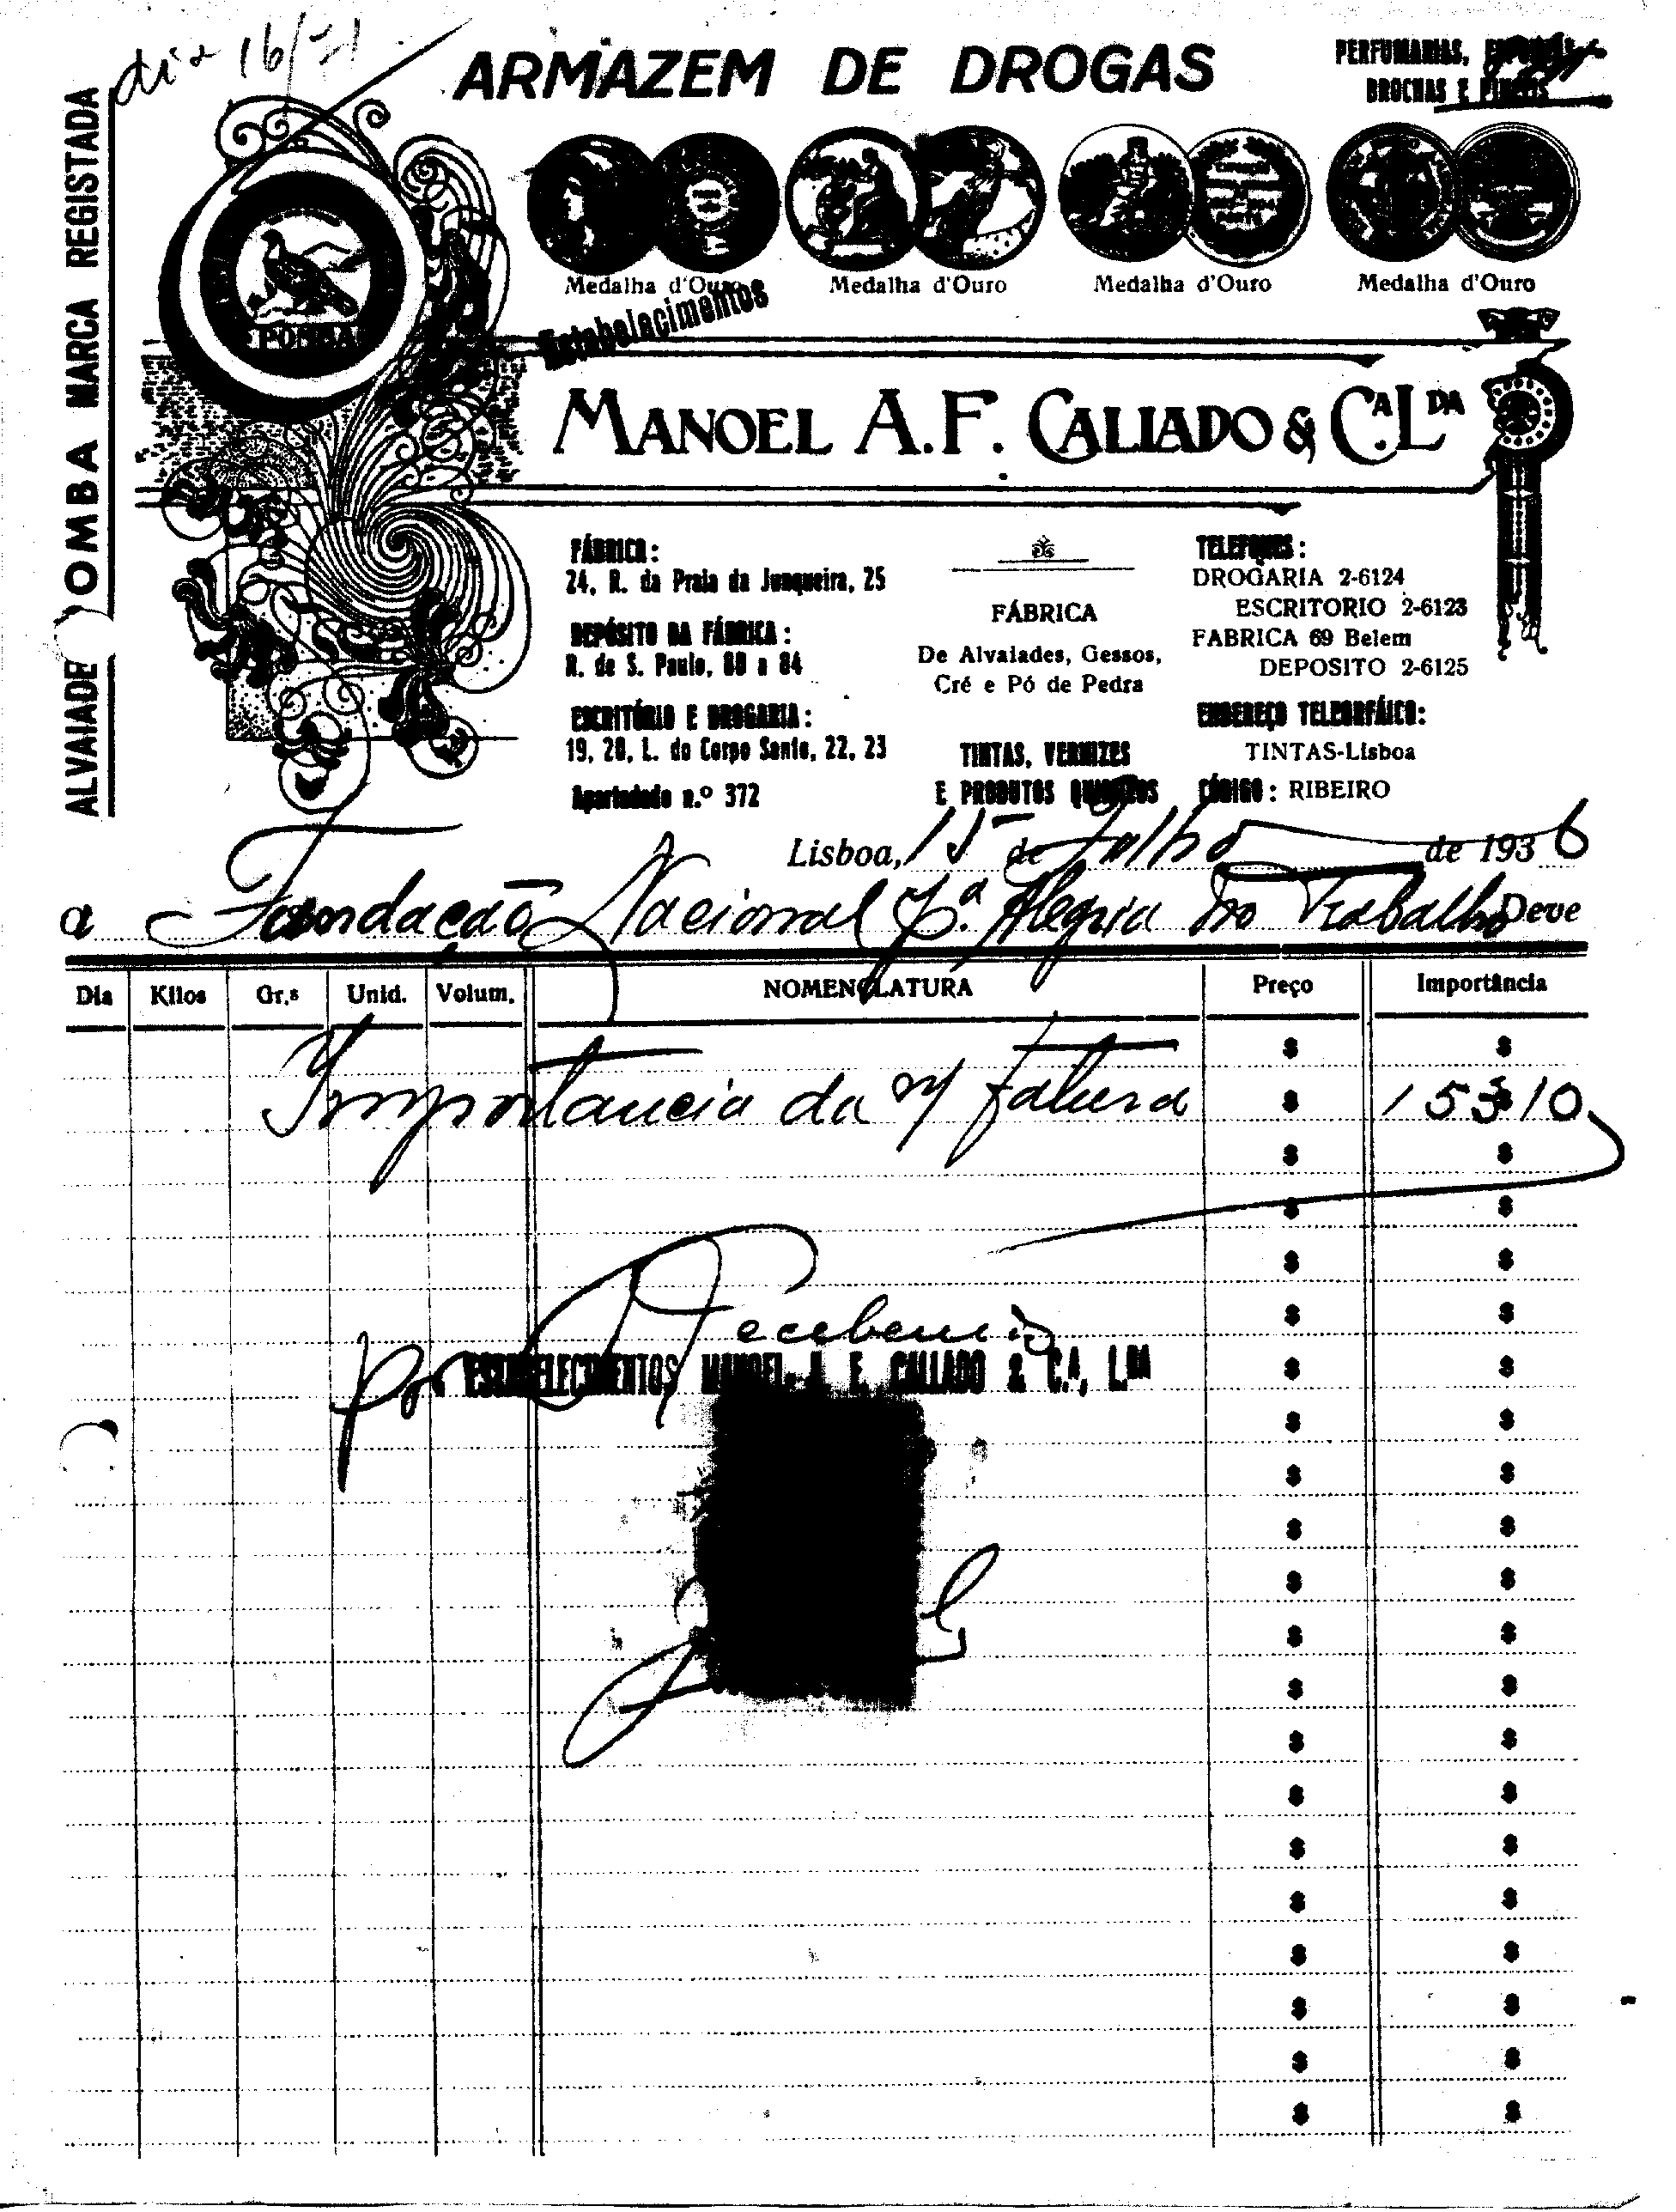 dia 16/31
ARMAZEM DE DROGAS
PERFUMARIAS,
BROCHAS E PINCEIS
ALVAIADE POMBA MARCA REGISTADA
POMBA
Medalha d'Ouro
Medalha d'Ouro
Medalha d'Ouro
Medalha d'Ouro
Estabelecimentos
MANOEL A.F. CALLADO & C.ª L.DA
FÁBRICA:
24, R. da Praia da Junqueira, 25
DEPÓSITO DA FÁBRICA:
R. de S. Paulo, 80 a 84
ESCRITÓRIO E DROGARIA:
19, 20, L. do Corpo Santo, 22, 23
Apartadado n.º 372
FÁBRICA
De Alvaiades, Gessos,
Cré e Pó de Pedra
TINTAS, VERNIZES
E PRODUTOS QUIMICOS
TELEFONES:
DROGARIA 2-6124
ESCRITORIO 2-6123
FABRICA 69 Belem
DEPOSITO 2-6125
ENDEREÇO TELEGRFÁICO:
TINTAS-Lisboa
CÓDIGO: RIBEIRO
Lisboa, 15 de Julho de 1936
a Fundação Nacional p.ª Alegria no Trabalho Deve
Dia Kilos Gr.s Unid. Volum. NOMENCLATURA Preço Importância
Importancia da n/ fatura 153$10
Recebemos
por ESTABELECIMENTOS MANOEL A. F. CALLADO & C.ª, L.DA